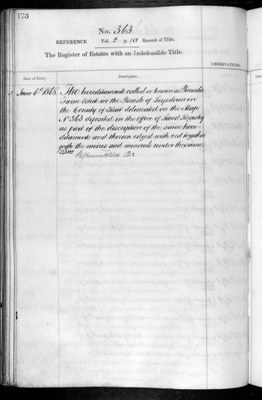 173
No. 363
REFERENCE Vol. 2 p. 10 Record of Title.
The Register of Estates with an Indefeasible Title.
OBSERVATIONS.
Date of Entry.
Description.
June 6th 1865
The hereditaments called or known as
Farm situate in the Parish of in
the County of Kent delineated on the Map
No 363 deposited in the office of Land Registry
as part of the description of the same here-
ditaments and thereon edged with red together
with the mines and minerals under the same